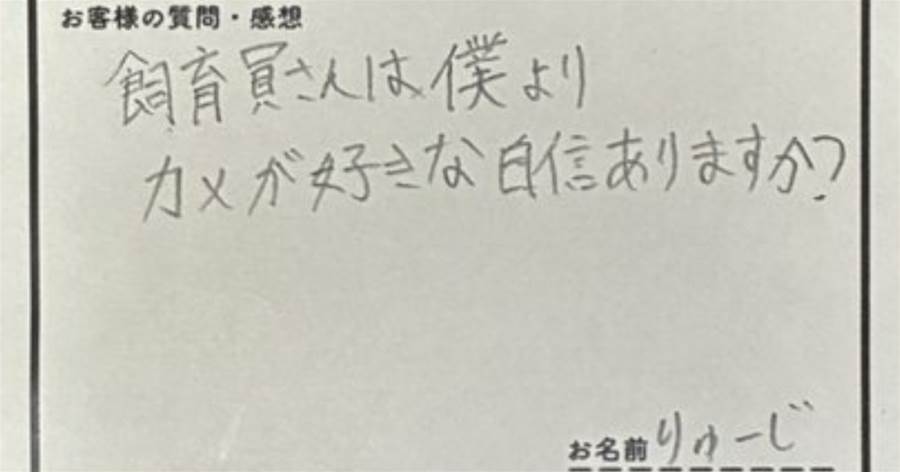 お客様の質問・感想
飼育員さんは僕より
カメが好きな自信ありますか?
お名前 りゅーじ